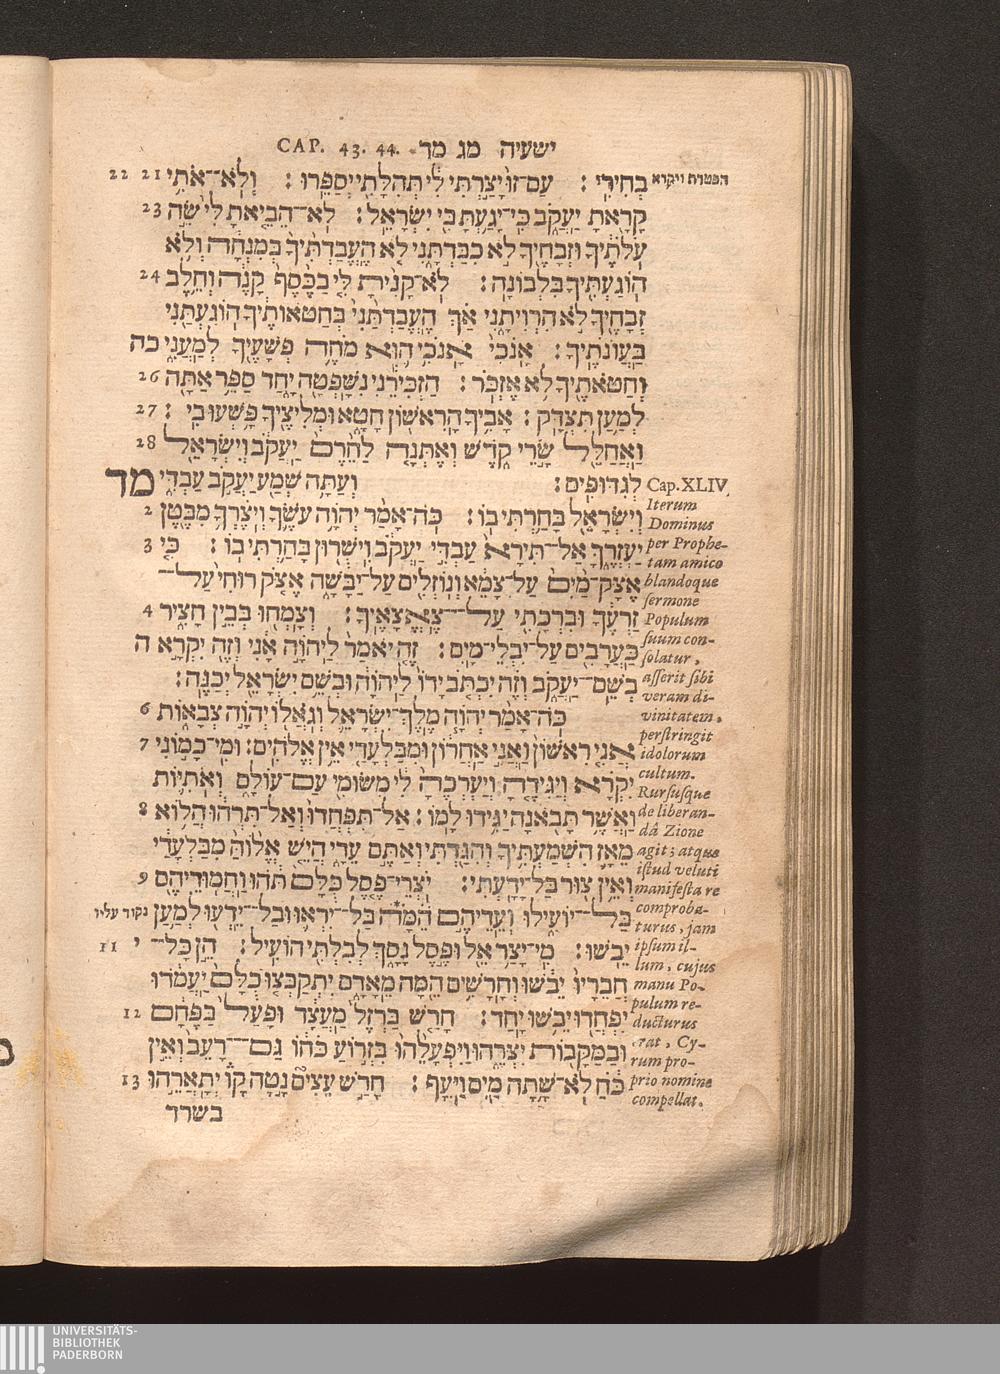 ישעיה מג מד CAP. 43. 44.
הפטרת ויקרא
בְּחִירִֽי׃ עַם־זוּ֙ יָצַ֣רְתִּי לִ֔י תְּהִלָּתִ֖י יְסַפֵּֽרוּ׃ וְלֹא־אֹתִ֥י 21 22
קָרָ֖אתָ יַעֲקֹ֑ב כִּֽי־יָגַ֥עְתָּ בִּ֖י יִשְׂרָאֵֽל׃ לֹֽא־הֵבֵ֤יאתָ לִּי֙ שֵׂ֣ה 23
עֹלֹתֶ֔יךָ וּזְבָחֶ֖יךָ לֹ֣א כִבַּדְתָּ֑נִי לֹ֤א הֶעֱבַדְתִּ֙יךָ֙ בְּמִנְחָ֔ה וְלֹ֥א
הוֹגַעְתִּ֖יךָ בִּלְבוֹנָֽה׃ לֹא־קָנִ֨יתָ לִּ֤י בַכֶּ֙סֶף֙ קָנֶ֔ה וְחֵ֥לֶב 24
זְבָחֶ֖יךָ לֹ֣א הִרְוִיתָ֑נִי אַ֗ךְ הֶעֱבַדְתַּ֙נִי֙ בְּחַטֹּאותֶ֔יךָ הוֹגַעְתַּ֖נִי
בַּעֲוֺנֹתֶֽיךָ׃ אָנֹכִ֨י אָנֹכִ֥י ה֛וּא מֹחֶ֥ה פְשָׁעֶ֖יךָ לְמַעֲנִ֑י כה
וְחַטֹּאתֶ֖יךָ לֹ֥א אֶזְכֹּֽר׃ הַזְכִּירֵ֕נִי נִשָּׁפְטָ֖ה יָ֑חַד סַפֵּ֥ר אַתָּ֖ה 26
לְמַ֥עַן תִּצְדָּֽק׃ אָבִ֥יךָ הָרִאשׁ֖וֹן חָטָ֑א וּמְלִיצֶ֖יךָ פָּ֥שְׁעוּ בִֽי׃ 27
וַאֲחַלֵּ֖ל שָׂ֣רֵי קֹ֑דֶשׁ וְאֶתְּנָ֤ה לַחֵ֙רֶם֙ יַעֲקֹ֔ב וְיִשְׂרָאֵ֖ל 28
Cap.XLIV, לְגִדּוּפִֽים׃ וְעַתָּ֥ה שְׁמַ֖ע יַעֲקֹ֣ב עַבְדִּ֑י מד
וְיִשְׂרָאֵ֖ל בָּחַ֥רְתִּי בֽוֹ׃ כֹּה־אָמַ֨ר יְהֹוָ֥ה עֹשֶׂ֛ךָ וְיֹצֶרְךָ֥ מִבֶּ֖טֶן 2
יַעְזְרֶ֑ךָּ אַל־תִּירָא֙ עַבְדִּ֣י יַעֲקֹ֔ב וִישֻׁר֖וּן בָּחַ֥רְתִּי בֽוֹ׃ כִּ֤י 3
אֶצָּק־מַ֙יִם֙ עַל־צָמֵ֔א וְנֹזְלִ֖ים עַל־יַבָּשָׁ֑ה אֶצֹּ֤ק רוּחִי֙ עַל־
זַרְעֶ֔ךָ וּבִרְכָתִ֖י עַל־צֶאֱצָאֶֽיךָ׃ וְצָמְח֖וּ בְּבֵ֣ין חָצִ֑יר 4
כַּעֲרָבִ֖ים עַל־יִבְלֵי־מָֽיִם׃ זֶ֤ה יֹאמַר֙ לַֽיהֹוָ֣ה אָ֔נִי וְזֶ֖ה יִקְרָ֣א ה
בְשֵֽׁם־יַעֲקֹ֑ב וְזֶ֗ה יִכְתֹּ֤ב יָדוֹ֙ לַֽיהֹוָ֔ה וּבְשֵׁ֥ם יִשְׂרָאֵ֖ל יְכַנֶּֽה׃
כֹּֽה־אָמַ֨ר יְהֹוָ֧ה מֶֽלֶךְ־יִשְׂרָאֵ֛ל וְגֹאֲל֖וֹ יְהֹוָ֣ה צְבָא֑וֹת 6
אֲנִ֤י רִאשׁוֹן֙ וַאֲנִ֣י אַחֲר֔וֹן וּמִבַּלְעָדַ֖י אֵ֥ין אֱלֹהִֽים׃ וּמִֽי־כָמ֣וֹנִי 7
יִקְרָ֗א וְיַגִּידֶ֤הָ וְיַעְרְכֶ֙הָ֙ לִ֔י מִשּׂוּמִ֖י עַם־עוֹלָ֑ם וְאֹתִיּ֛וֹת
וַאֲשֶׁ֥ר תָּבֹ֖אנָה יַגִּ֥ידוּ לָֽמוֹ׃ אַֽל־תִּפְחֲדוּ֙ וְאַל־תִּרְה֔וּ הֲלֹ֥א 8
מֵאָ֛ז הִשְׁמַעְתִּ֥יךָ וְהִגַּ֖דְתִּי וְאַתֶּ֣ם עֵדָ֑י הֲיֵ֤שׁ אֱל֙וֹהַּ֙ מִבַּלְעָדַ֔י
וְאֵ֥ין צ֖וּר בַּל־יָדָֽעְתִּי׃ יֹֽצְרֵי־פֶ֤סֶל כֻּלָּם֙ תֹּ֔הוּ וַחֲמוּדֵיהֶ֖ם 9
בַּל־יוֹעִ֑ילוּ וְעֵדֵיהֶ֣ם הֵ֗מָּה בַּל־יִרְא֛וּ וּבַל־יֵדְע֖וּ לְמַ֥עַן נקוד עליו
יֵבֹֽשׁוּ׃ מִֽי־יָצַ֥ר אֵ֖ל וּפֶ֣סֶל נָסָ֑ךְ לְבִלְתִּ֖י הוֹעִֽיל׃ הֵ֤ן כׇּל־ י 11
חֲבֵרָיו֙ יֵבֹ֔שׁוּ וְחָרָשִׁ֥ים הֵ֖מָּה מֵאָדָ֑ם יִֽתְקַבְּצ֤וּ כֻלָּם֙ יַֽעֲמֹ֔דוּ
יִפְחֲד֖וּ יֵבֹ֥שׁוּ יָֽחַד׃ חָרַ֤שׁ בַּרְזֶל֙ מַֽעֲצָ֔ד וּפָעַל֙ בַּפֶּחָ֔ם 12
וּבַמַּקָּב֖וֹת יִצְּרֵ֑הוּ וַיִּפְעָלֵ֙הוּ֙ בִּזְר֣וֹעַ כֹּח֔וֹ גַּם־רָעֵב֙ וְאֵ֣ין
כֹּ֔חַ לֹא־שָׁ֥תָה מַ֖יִם וַיִּיעָֽף׃ חָרַ֣שׁ עֵצִים֮ נָ֣טָה קָו֒ יְתָאֲרֵ֣הוּ 13
בשרד
Iterum
Dominus
per Prophe-
tam amico
blandoque
sermone
Populum
suum con-
solatur,
asserit sibi
veram di-
vinitatem,
perstringit
idolorum
cultum.
Rursusque
de liberan-
dâ Zione
agit; atque
istud veluti
manifesta re
comproba-
turus, jam
ipsum il-
lum, cujus
manu Po-
pulum re-
ducturus
erat, Cy-
rum pro-
prio nomine
compellat.
UNIVERSITÄTS-
BIBLIOTHEK
PADERBORN